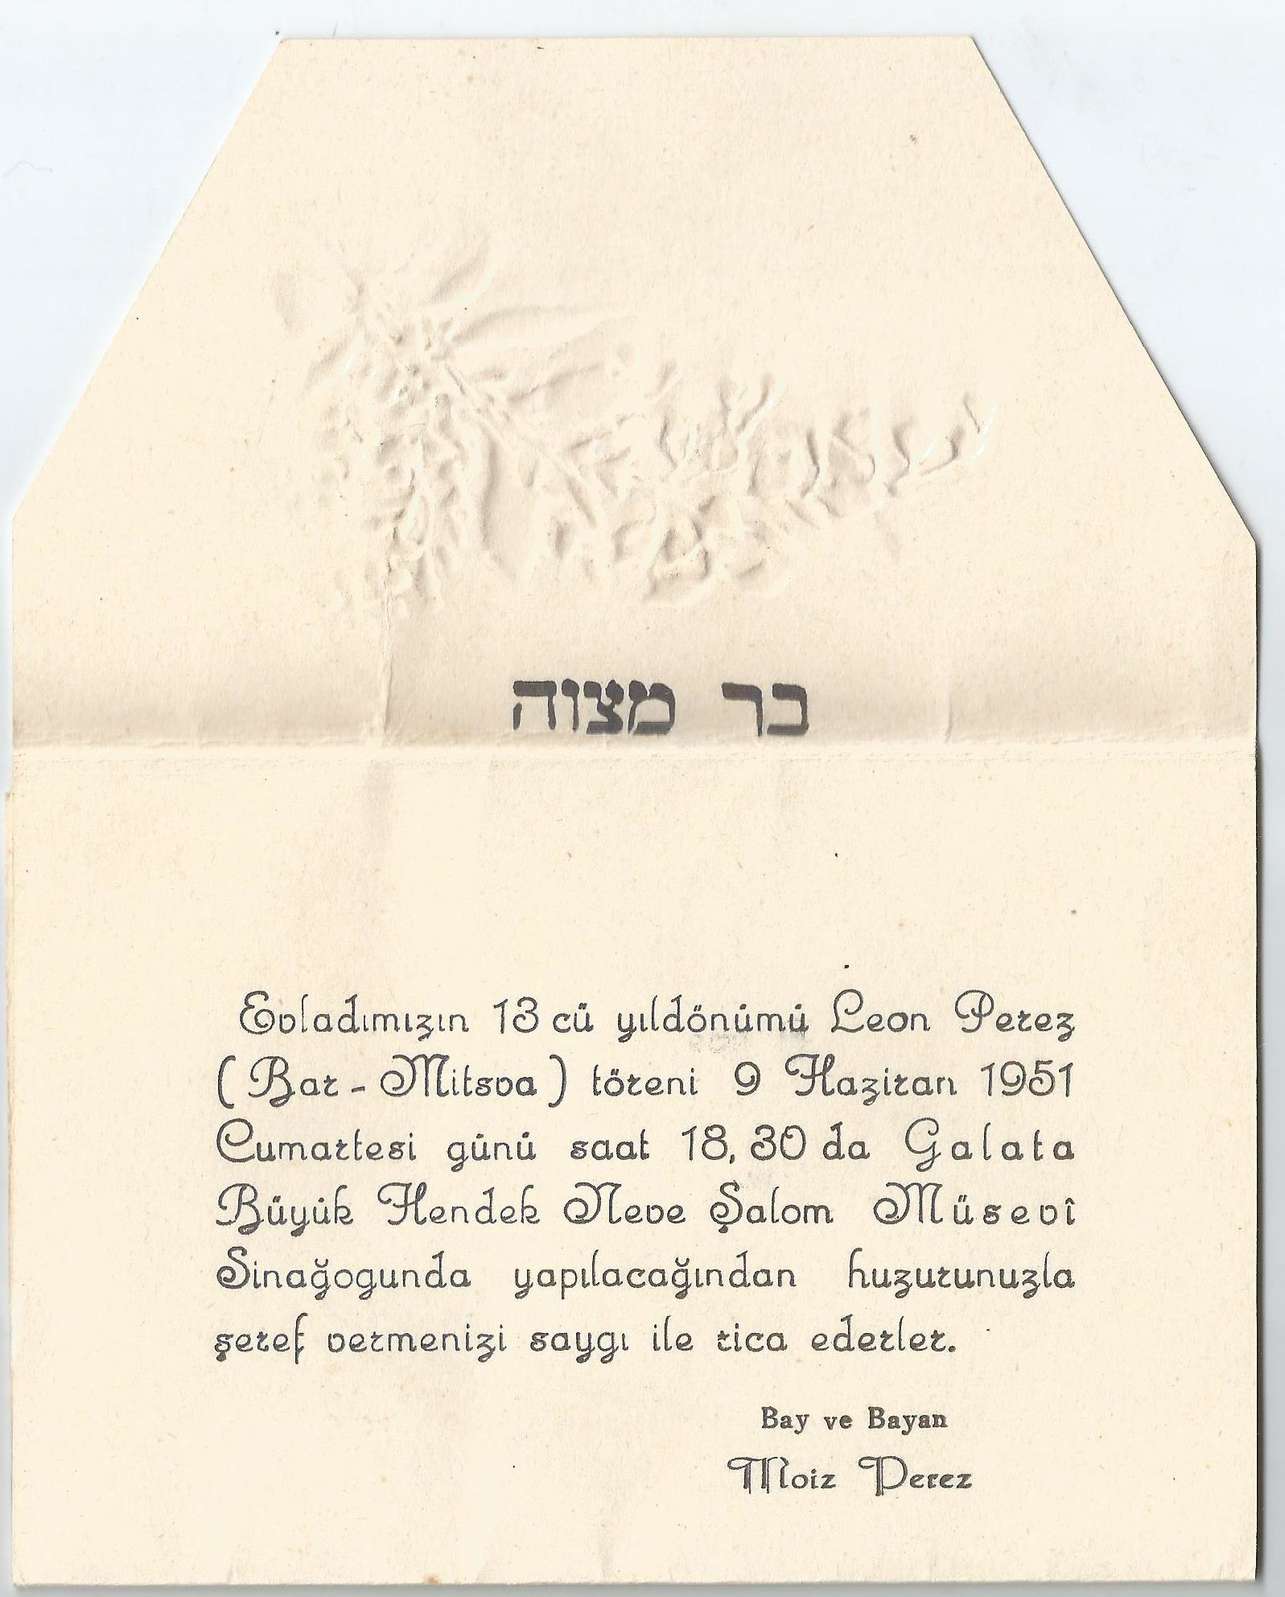 בר מצוה
Evladımızın 13 cü yıldönümü Leon Perez
( Bar - Mitsva ) töreni 9 Haziran 1951
Cumartesi günü saat 18,30 da Galata
Büyük Hendek Neve Şalom Müsevî
Sinağogunda yapılacağından huzurunuzla
şeref vermenizi saygı ile rica ederler.
Bay ve Bayan
Moiz Perez